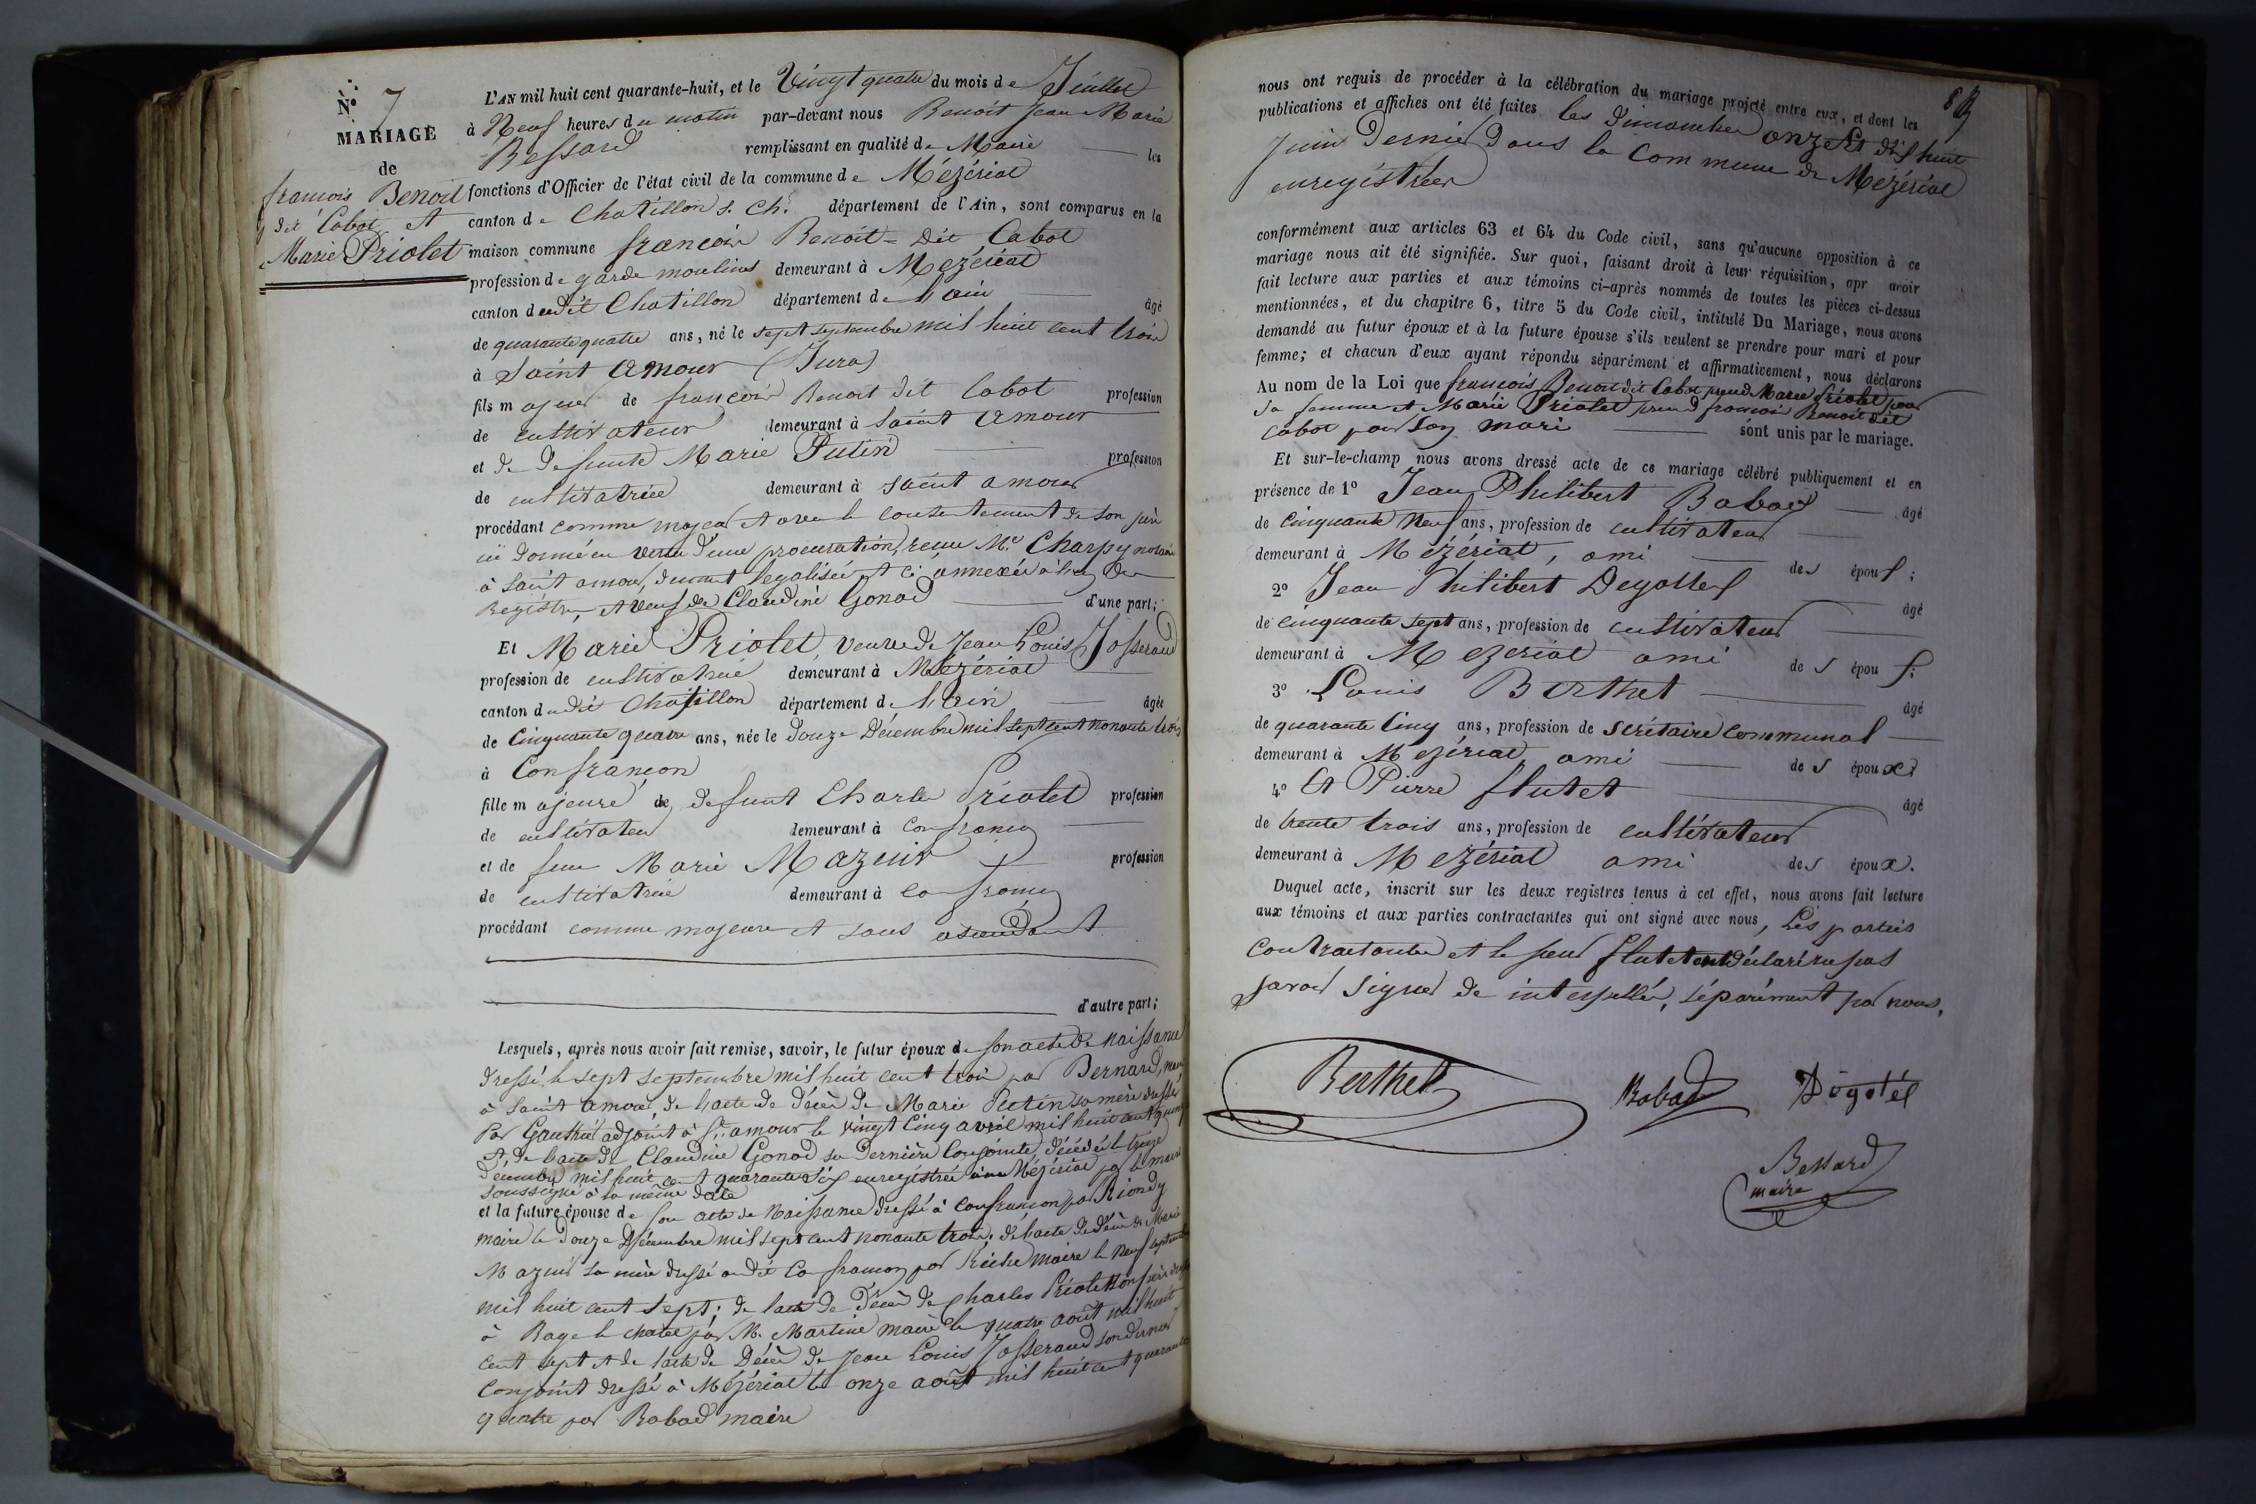 N° 7
MARIAGE
de
françois Benoit
dit Cabot et
Marie Priolet
L'AN mil huit cent quarante-huit, et le Vingt quatre du mois de Juillet
à Neuf heures du matin par-devant nous Benoit Jean Marie
Bessard remplissant en qualité de Maire les
fonctions d'Officier de l'état civil de la commune de Mézériat
canton de Chatillon s. Ch. département de l'Ain, sont comparus en la
maison commune françois Benoit dit Cabot
profession de garde moulins demeurant à Mézériat
canton dudit Chatillon département de l'ain âgé
de quarante quatre ans, né le sept septembre mil huit cent trois
à Saint Amour (Jura)
fils majeur de françois Benoit dit Cabot profession
de cultivateur demeurant à Saint Amour
et de defunte Marie Putin profession
de cultivatrice demeurant à Saint amour
procédant comme majeur et avec le consentement de son père
ici donné en vertu d'une procuration, reçue Me Charpy notaire
à Saint amour, dument legalisée et ci annexée à l'un des
Registres, et veuf de Claudine Gonod d'une part;
Et Marie Priolet, veuve de Jean Louis Josserand
profession de cultivatrice demeurant à Mézériat
canton dudit Chatillon département de l'Ain âgée
de Cinquante quatre ans, née le douze Décembre mil sept cent nonante trois
à Confrançon
fille majeure de defunt Charles Priolet profession
de cultivateur demeurant à Confrançon
et de feue Marie Mazuir profession
de cultivatrice demeurant à Confrançon
procédant comme majeure et sans ascendant
d'autre part;
Lesquels, après nous avoir fait remise, savoir, le futur époux de son acte de naissance
dressé le sept septembre mil huit cent trois par Bernard, maire
à Saint Amour, de l'acte de décès de Marie Putin sa mère dressé
Par Gauthier adjoint à St. amour le vingt Cinq avril mil huit cent quinze
et, de l'acte de Claudine Gonod sa dernière Conjointe, décédée le treize
Décembre mil huit cent quarante six enregistrée à Mézériat par le maire
soussigné à la même date
et la future épouse de son acte de Naissance dressé à Confrançon par Riondy
maire le douze Décembre mil sept cent nonante trois; de l'acte de décès de Marie
Mazuir sa mère dressé audit Confrançon par maire le Neuf septembre
mil huit cent sept; de l'acte de Décès de Charles Priolet son père dressé
à Bage le chatel par M. Martine maire le quatre août mil huit
cent sept et de l'acte de Décès de Jean Louis Josserand son dernier
Conjoint dressé à Mézériat le onze août mil huit cent quarante
quatre par Rabad maire
nous ont requis de procéder à la célébration du mariage projeté entre eux, et dont les
publications et affiches ont été faites les dimanches onze et dix huit
Juin Dernier dans la Commune de Mézériat
enregistrées
conformément aux articles 63 et 64 du Code civil, sans qu'aucune opposition à ce
mariage nous ait été signifiée. Sur quoi, faisant droit à leur réquisition, apr avoir
fait lecture aux parties et aux témoins ci-après nommés de toutes les pièces ci-dessus
mentionnées, et du chapitre 6, titre 5 du Code civil, intitulé Du Mariage, nous avons
demandé au futur époux et à la future épouse s'ils veulent se prendre pour mari et pour
femme; et chacun d'eux ayant répondu séparément et affirmativement, nous déclarons
Au nom de la Loi que françois Benoit dit Cabot prend Marie Priolet pour
sa femme et Marie Priolet prend françois Benoit dit
Cabot pour son mari sont unis par le mariage.
Et sur-le-champ nous avons dressé acte de ce mariage célébré publiquement et en
présence de 1° Jean Philibert Rabad âgé
de Cinquante Neuf ans, profession de cultivateur
demeurant à Mézériat, ami des époux;
2° Jean Philibert Degottel âgé
de cinquante sept ans, profession de cultivateur
demeurant à Mezeriat ami des époux;
3° Louis Berthet âgé
de quarante Cinq ans, profession de secrétaire communal
demeurant à Mezériat ami des époux;
4° Et Pierre flutet âgé
de trente trois ans, profession de cultivateur
demeurant à Mezériat ami des époux.
Duquel acte, inscrit sur les deux registres tenus à cet effet, nous avons fait lecture
aux témoins et aux parties contractantes qui ont signé avec nous, Les parties
Contractantes et le sieur flutet ont déclaré ne pas
savoir signer de interpellés, séparément par nous.
Berthet
Rabad
Dégotél
Bessard
maire